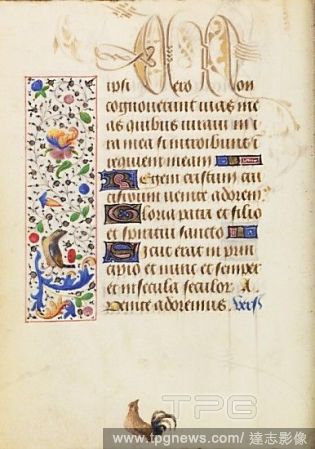 ipsi vero non
cognoverunt vias me
as quibus iuravi in i
ra mea si introibunt i
requiem meam
Regem
venite adorem?
Gloria patri et filio
et spiritui sancto
Sicut erat in prin
cipio et nunc et semper
et in secula seculor A
Venite adoremus
TPG
www.tpgnews.com/ 達志影像